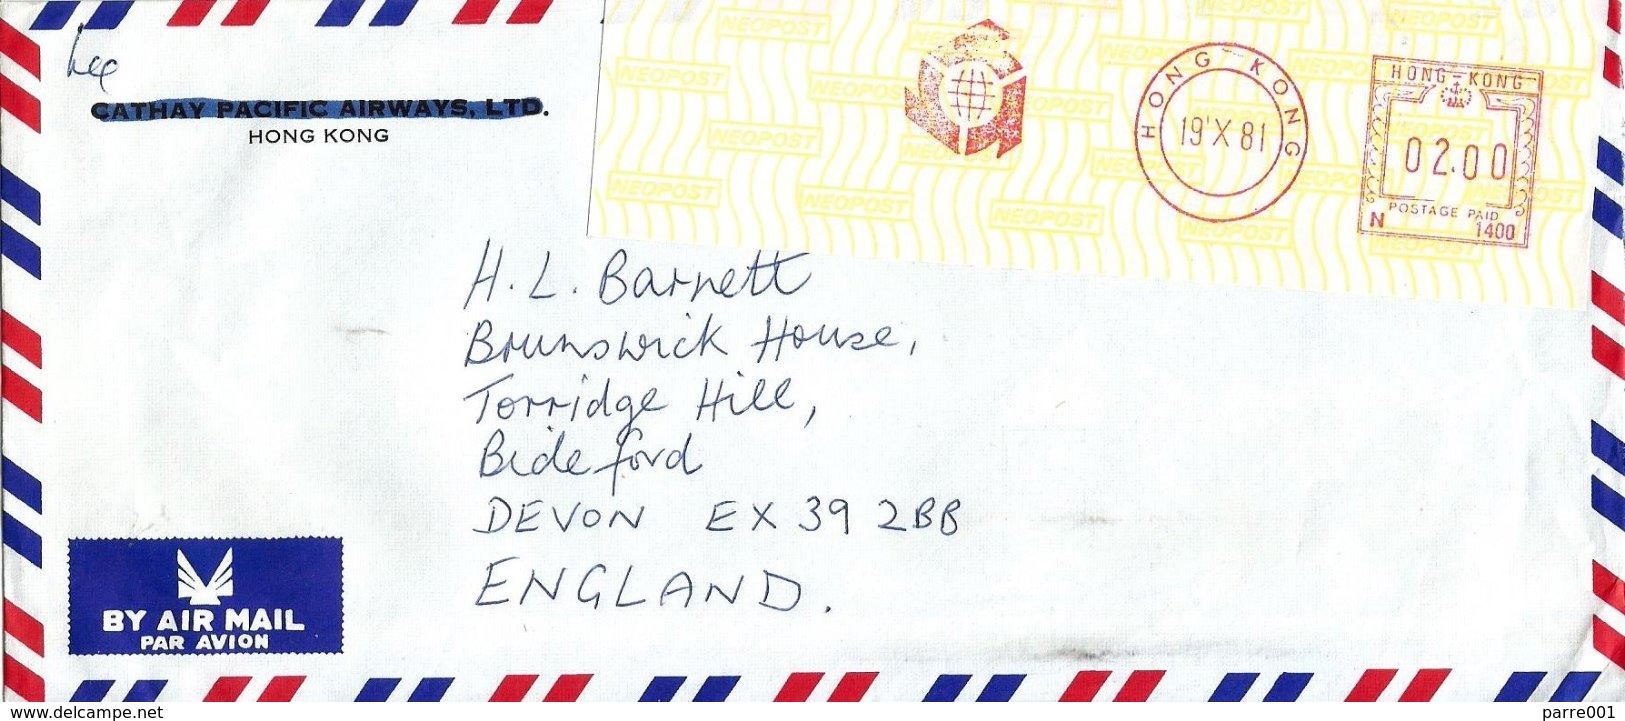 Lee
CATHAY PACIFIC AIRWAYS, LTD.
HONG KONG
NEOPOST
HONG KONG
19 X 81
HONG KONG
02.00
POSTAGE PAID
N 1400
H. L. Barnett
Brunswick House,
Torridge Hill,
Bideford
DEVON EX39 2BB
ENGLAND.
BY AIR MAIL
PAR AVION
www.delcampe.net
parre001